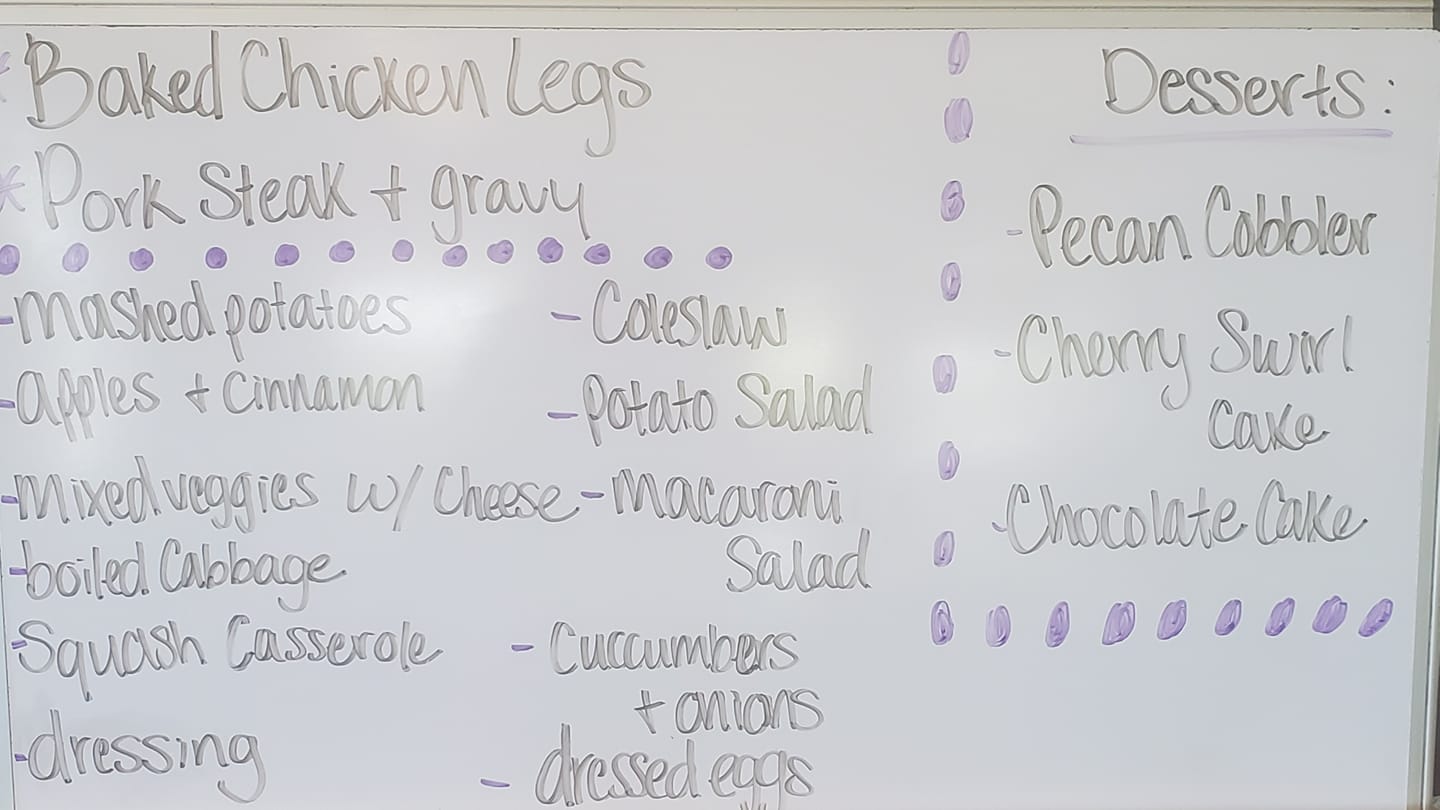 * Baked Chicken Legs
* Pork Steak + gravy
- Mashed potatoes
- Apples + Cinnamon
- Mixed veggies w/ Cheese
- boiled Cabbage
- Squash Casserole
- dressing
- Coleslaw
- Potato Salad
- Macaroni
Salad
- Cuccumbers
+ onions
- dressed eggs
Desserts:
- Pecan Cobbler
- Cherry Swirl
Cake
- Chocolate Cake